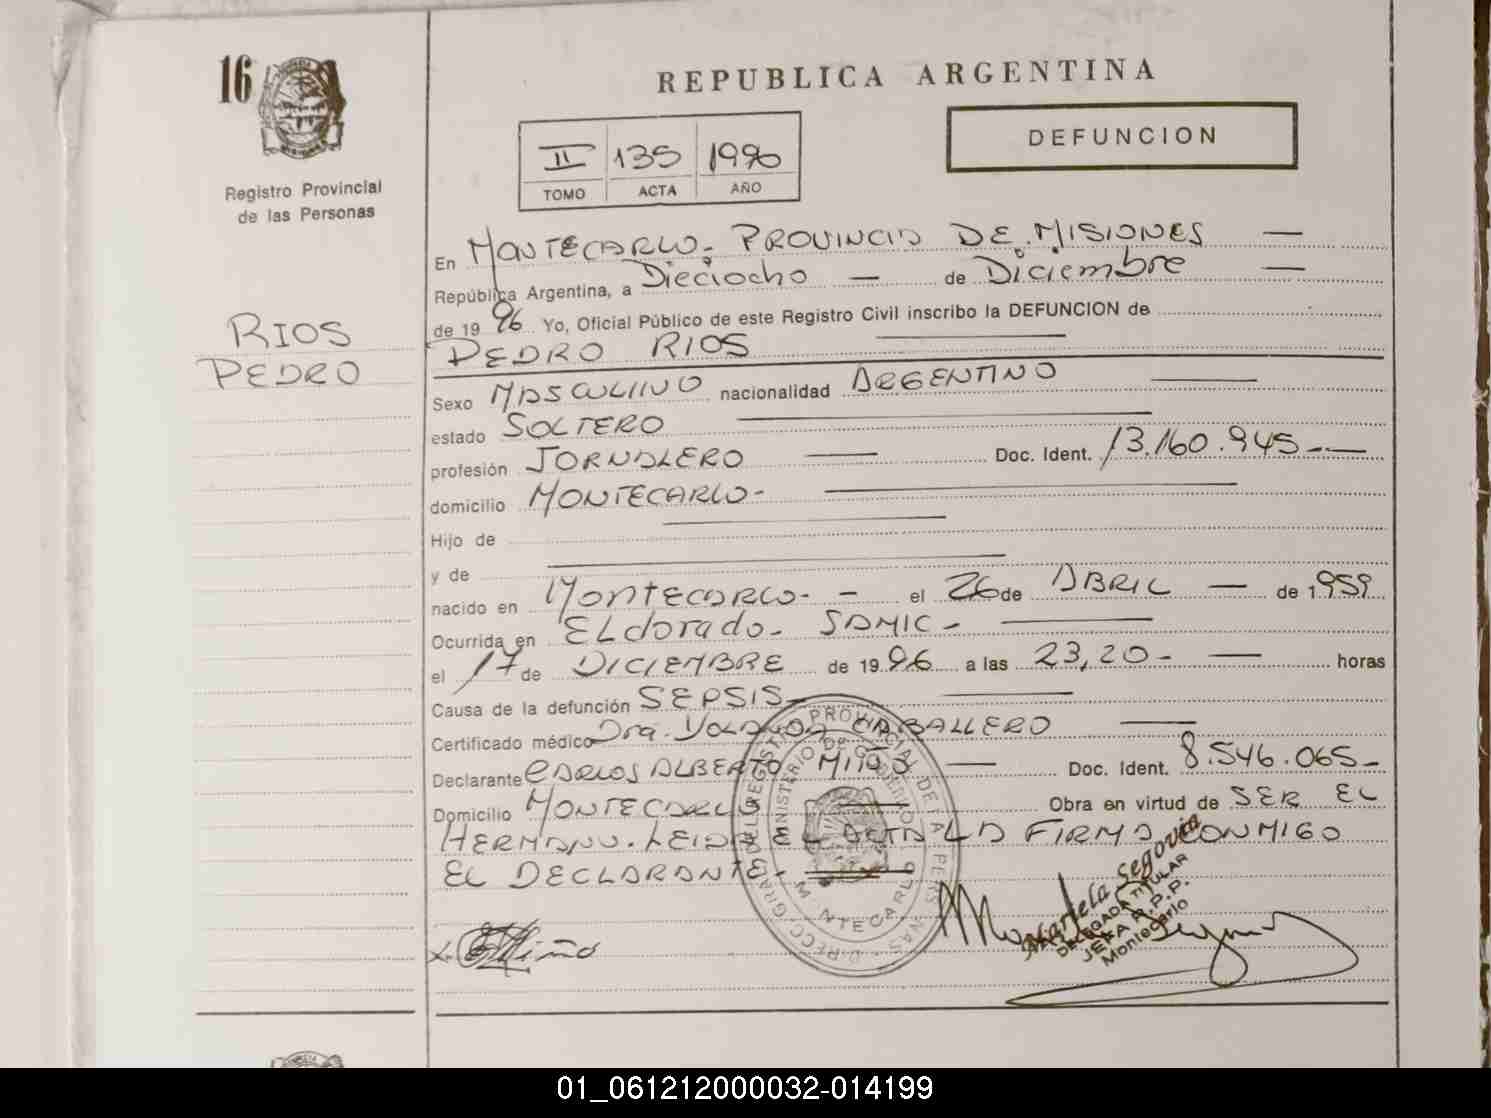 16
REPUBLICA ARGENTINA
DEFUNCION
II 135 1996
TOMO ACTA AÑO
Registro Provincial
de las Personas
RIOS
PEDRO
En MONTECARLO - PROVINCIA DE MISIONES —
República Argentina, a Dieciocho — de Diciembre —
de 19 96 Yo, Oficial Público de este Registro Civil inscribo la DEFUNCION de
PEDRO RIOS
Sexo MASCULINO nacionalidad ARGENTINO
estado SOLTERO
profesión JORNALERO — Doc. Ident. 13.160.945 - —
domicilio MONTECARLO -
Hijo de
y de
nacido en MONTECARLO - - el 26 de ABRIL — de 1959
Ocurrida en ELdorado - SAMIC -
el 17 de DICIEMBRE de 19 96 a las 23,20 - — horas
Causa de la defunción SEPSIS -
Certificado médico Dra. YOLANDA CABALLERO —
Declarante CARLOS ALBERTO MIÑO — Doc. Ident. 8.546.065 -
Domicilio MONTECARLO Obra en virtud de SER EL
HERMANO. LEIDA EL ACTA LA FIRMA CONMIGO
EL DECLARANTE -
Miño
Marta Segovia
DELEGADA TITULAR
JEFA R.P.P.
Montecarlo
DIRECC. GRAL DEL REGISTRO PROVINCIAL DE LA PERSONAS
MINISTERIO DE GOBIERNO
MONTECARLO
01_061212000032-014199